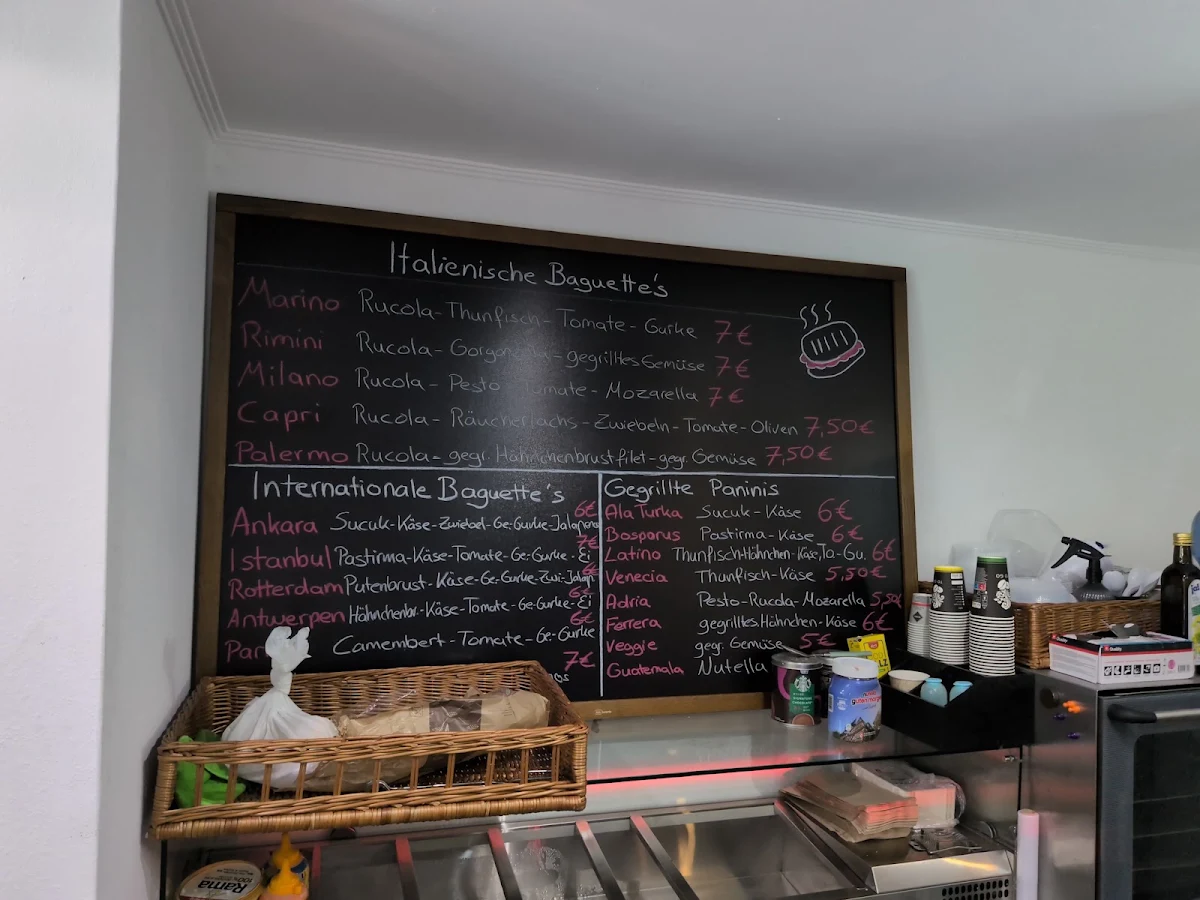 Italienische Baguette's
Marino Rucola-Thunfisch-Tomate-Gurke 7€
Rimini Rucola-Gorgonzola-gegrilltes Gemüse 7€
Milano Rucola-Pesto Tomate-Mozarella 7€
Capri Rucola-Räucherlachs-Zwiebeln-Tomate-Oliven 7,50€
Palermo Rucola-gegr. Hähnchenbrustfilet-gegr. Gemüse 7,50€
Internationale Baguette's
6€
Ankara Sucuk-Käse-Zwiebel-Ge-Gurke-Jalapeno
7€
Istanbul Pastirma-Käse-Tomate-Ge-Gurke-Ei
Rotterdam Putenbrust-Käse-Ge-Gurke-Zwi-Jalap
6€
Antwerpen Hähnchenbr.-Käse-Tomate-Ge-Gurke-Ei
6€
Camembert-Tomate-Ge-Gurke
7€
Gegrillte Paninis
Ala Turka Sucuk-Käse 6€
Bosporus Pastirma-Käse 6€
Latino Thunfisch-Hähnchen-Käse, To-Gu. 6€
Venecia Thunfisch-Käse 5,50€
Adria Pesto-Rucola-Mozarella 5,50
Ferrera gegrilltes Hähnchen-Käse 6€
Veggie gegr. Gemüse 5€
Guatemala Nutella
Rama